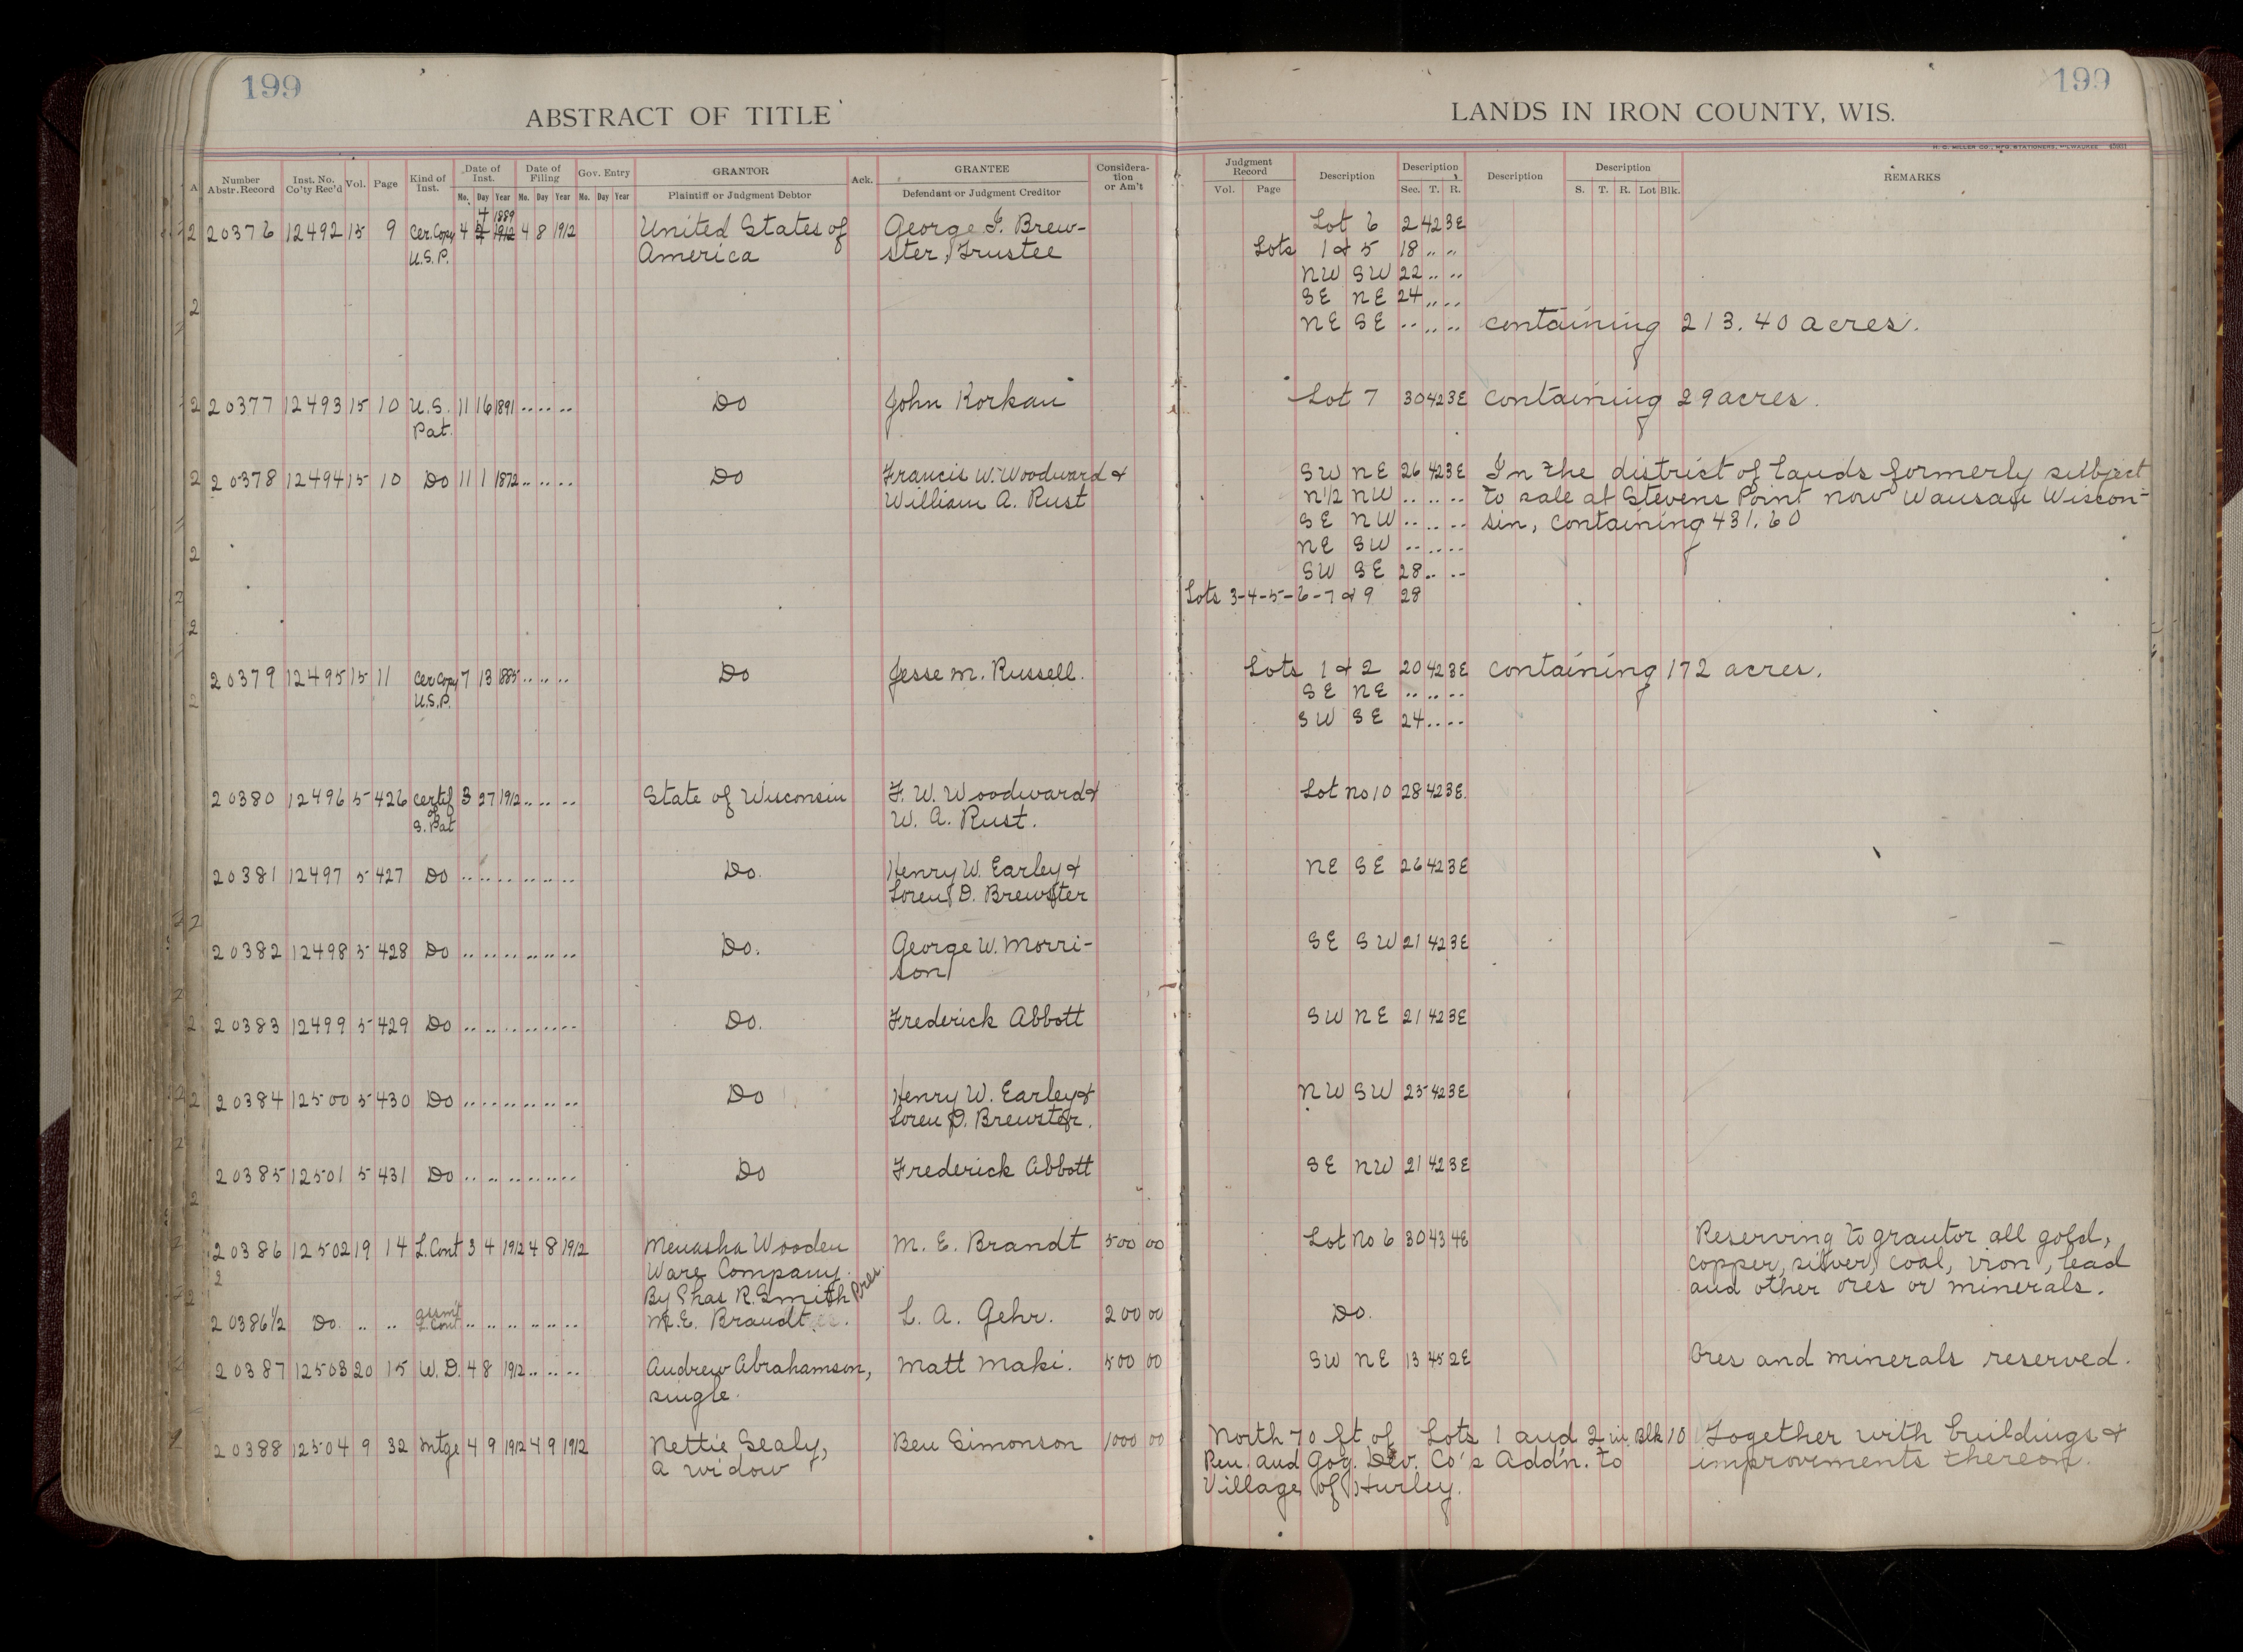 199
ABSTRACT OF TITLE
Number Abstr. Record | Inst. No. Co'ty Rec'd | Vol. | Page | Kind of Inst. | Date of Inst. Mo. Day Year | Date of Filing Mo. Day Year | Gov. Entry Mo. Day Year | GRANTOR Plaintiff or Judgment Debtor | Ack. | GRANTEE Defendant or Judgment Creditor | Considera-tion or Am't
199
LANDS IN IRON COUNTY, WIS.
H. G. MILLER CO., MFG. STATIONERS, MILWAUKEE
Judgment Record Vol. Page | Description | Description Sec. T. R. | Description | Description S. T. R. Lot Blk. | REMARKS
4 1889
20376 12492 15 9 Cer. Copy 4 2 1912 4 8 1912 United States of George I. Brew- Lot 6 2 42 3E
U.S.P. America ster, Trustee Lots 1 & 5 18 .. ..
NW SW 22 .. ..
SE NE 24 .. ..
NE SE .. .. .. containing 213.40 acres.
20377 12493 15 10 U.S. 11 16 1891 .. .. .. Do John Korkau Lot 7 30 42 3E containing 29 acres.
Pat.
20378 12494 15 10 Do 11 1 1872 .. .. .. Do Francis W. Woodward & SW NE 26 42 3E In the district of lands formerly subject
William A. Rust N1/2 NW .. .. .. to sale at Stevens Point now Wausau Wiscon-
SE NW .. .. .. sin, containing 431.60
NE SW .. .. ..
SW SE 28 .. ..
Lots 3-4-5-6-7 & 9 28
20379 12495 15 11 Cer Copy 7 13 1885 .. .. .. Do Jesse M. Russell. Lots 1 & 2 20 42 3E containing 172 acres.
U.S.P. SE NE .. .. ..
SW SE 24 .. ..
20380 12496 5 426 Certif 3 27 1912 .. .. .. State of Wisconsin F. W. Woodward & Lot No 10 28 42 3E.
of
S. Pat W. A. Rust.
20381 12497 5 427 Do .. .. .. .. .. .. Do. Henry W. Earley & NE SE 26 42 3E
Loren D. Brewster
20382 12498 5 428 Do .. .. .. .. .. .. Do. George W. Morri- SE SW 21 42 3E
son
20383 12499 5 429 Do .. .. .. .. .. .. Do. Frederick Abbott SW NE 21 42 3E
20384 12500 5 430 Do .. .. .. .. .. .. Do Henry W. Earley & NW SW 25 42 3E
Loren D. Brewster.
20385 12501 5 431 Do .. .. .. .. .. .. Do Frederick Abbott SE NW 21 42 3E
20386 12502 19 14 L. Cont 3 4 1912 4 8 1912 Menasha Wooden M. E. Brandt 500 00 Lot No 6 30 43 4E Reserving to grantor all gold,
Ware Company. copper, silver, coal, iron, lead
By Chas R. Smith Pres. and other ores or minerals.
20386 1/2 Do .. .. assm't L. Cont .. .. .. .. .. .. M. E. Brandt L. A. Gehr. 200 00 Do.
20387 12503 20 15 W. D. 4 8 1912 .. .. .. Andrew Abrahamson, Matt Maki. 500 00 SW NE 13 45 2E Ores and minerals reserved.
single.
20388 12504 9 32 Mtge 4 9 1912 4 9 1912 Nettie Sealy, Ben Simonson 1000 00 North 70 ft of Lots 1 and 2 in Blk 10 Together with buildings &
a widow Pen. and Gog. Dev. Co's Add'n. to improvements thereon.
Village of Hurley.